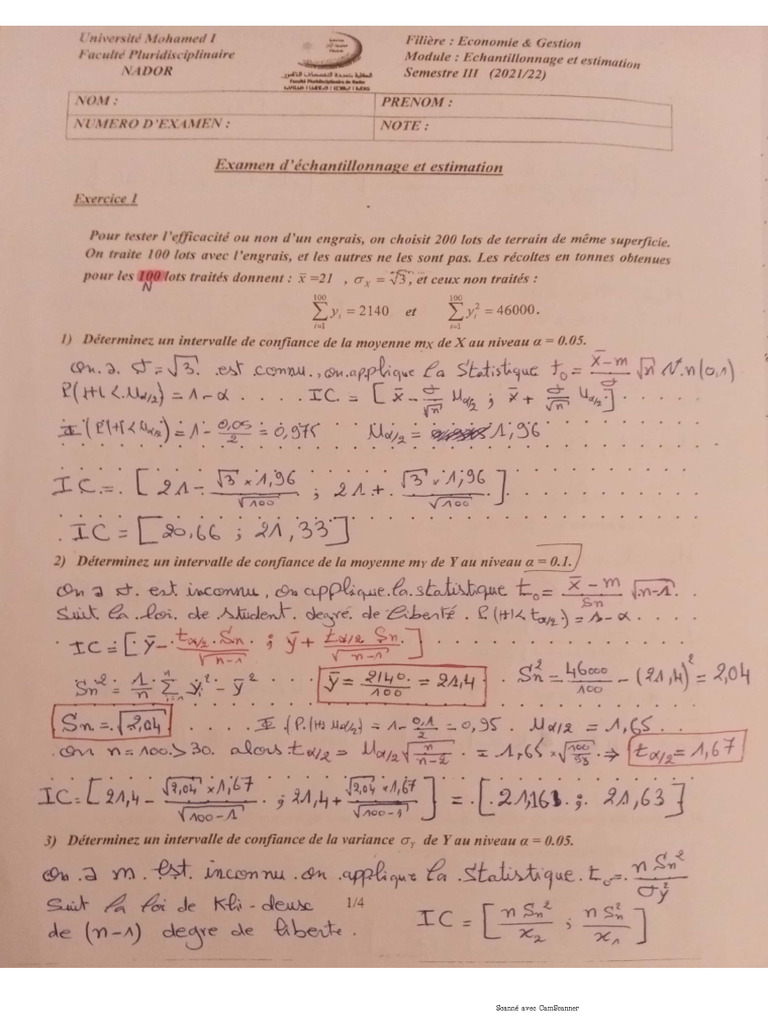 Université Mohamed I
Faculté Pluridisciplinaire
NADOR
Filière : Economie & Gestion
Module : Echantillonnage et estimation
Semestre III (2021/22)
NOM :
PRENOM :
NUMERO D'EXAMEN :
NOTE :
Examen d'échantillonnage et estimation
Exercice 1
Pour tester l'efficacité ou non d'un engrais, on choisit 200 lots de terrain de même superficie.
On traite 100 lots avec l'engrais, et les autres ne les sont pas. Les récoltes en tonnes obtenues
pour les 100 lots traités donnent : x̄ =21 , σx = √3, et ceux non traités :
N
∑_{i=1}^{100} y_i = 2140 et ∑_{i=1}^{100} y_i² = 46000.
1) Déterminez un intervalle de confiance de la moyenne mX de X au niveau α = 0.05.
on a σ = √3. est connu, on applique la statistique t₀ = (x̄ - m)/σ √n N.n(0,1)
P(|t| < μα/2) = 1 - α IC = [x̄ - σ/√n μα/2 ; x̄ + σ/√n μα/2]
(P(|t| < μα/2) = 1 - 0,05/2 = 0,975 μα/2 = 1,96
IC = [21 - (√3 × 1,96)/√100 ; 21 + (√3 × 1,96)/√100]
IC = [20,66 ; 21,33]
2) Déterminez un intervalle de confiance de la moyenne mY de Y au niveau α = 0.1.
on a σ est inconnu, on applique la statistique t₀ = (x̄ - m)/Sn √n-1
suit la loi de student degré de liberté P(|t| < tα/2) = 1 - α
IC = [ȳ - (tα/2 . Sn)/√n-1 ; ȳ + (tα/2 Sn)/√n-1]
Sn² = 1/n ∑ y_i² - ȳ² ȳ = 2140/100 = 21,4 Sn² = 46000/100 - (21,4)² = 2,04
Sn = √2,04 (P(|t| < μα/2) = 1 - 0,1/2 = 0,95 μα/2 = 1,65
on n = 100 > 30 alors tα/2 = μα/2 √n/n-2 = 1,65 × √100/98 ⇒ tα/2 = 1,67
IC = [21,4 - (√2,04 × 1,67)/√100-1 ; 21,4 + (√2,04 × 1,67)/√100-1] = [21,161 ; 21,63]
3) Déterminez un intervalle de confiance de la variance σY de Y au niveau α = 0.05.
on a m est inconnu on applique la statistique t₀ = n Sn²/σ²y
suit la loi de Khi-deux
1/4
IC = [n Sn²/x₂ ; n Sn²/x₁]
de (n-1) degre de liberte.
Scanné avec CamScanner